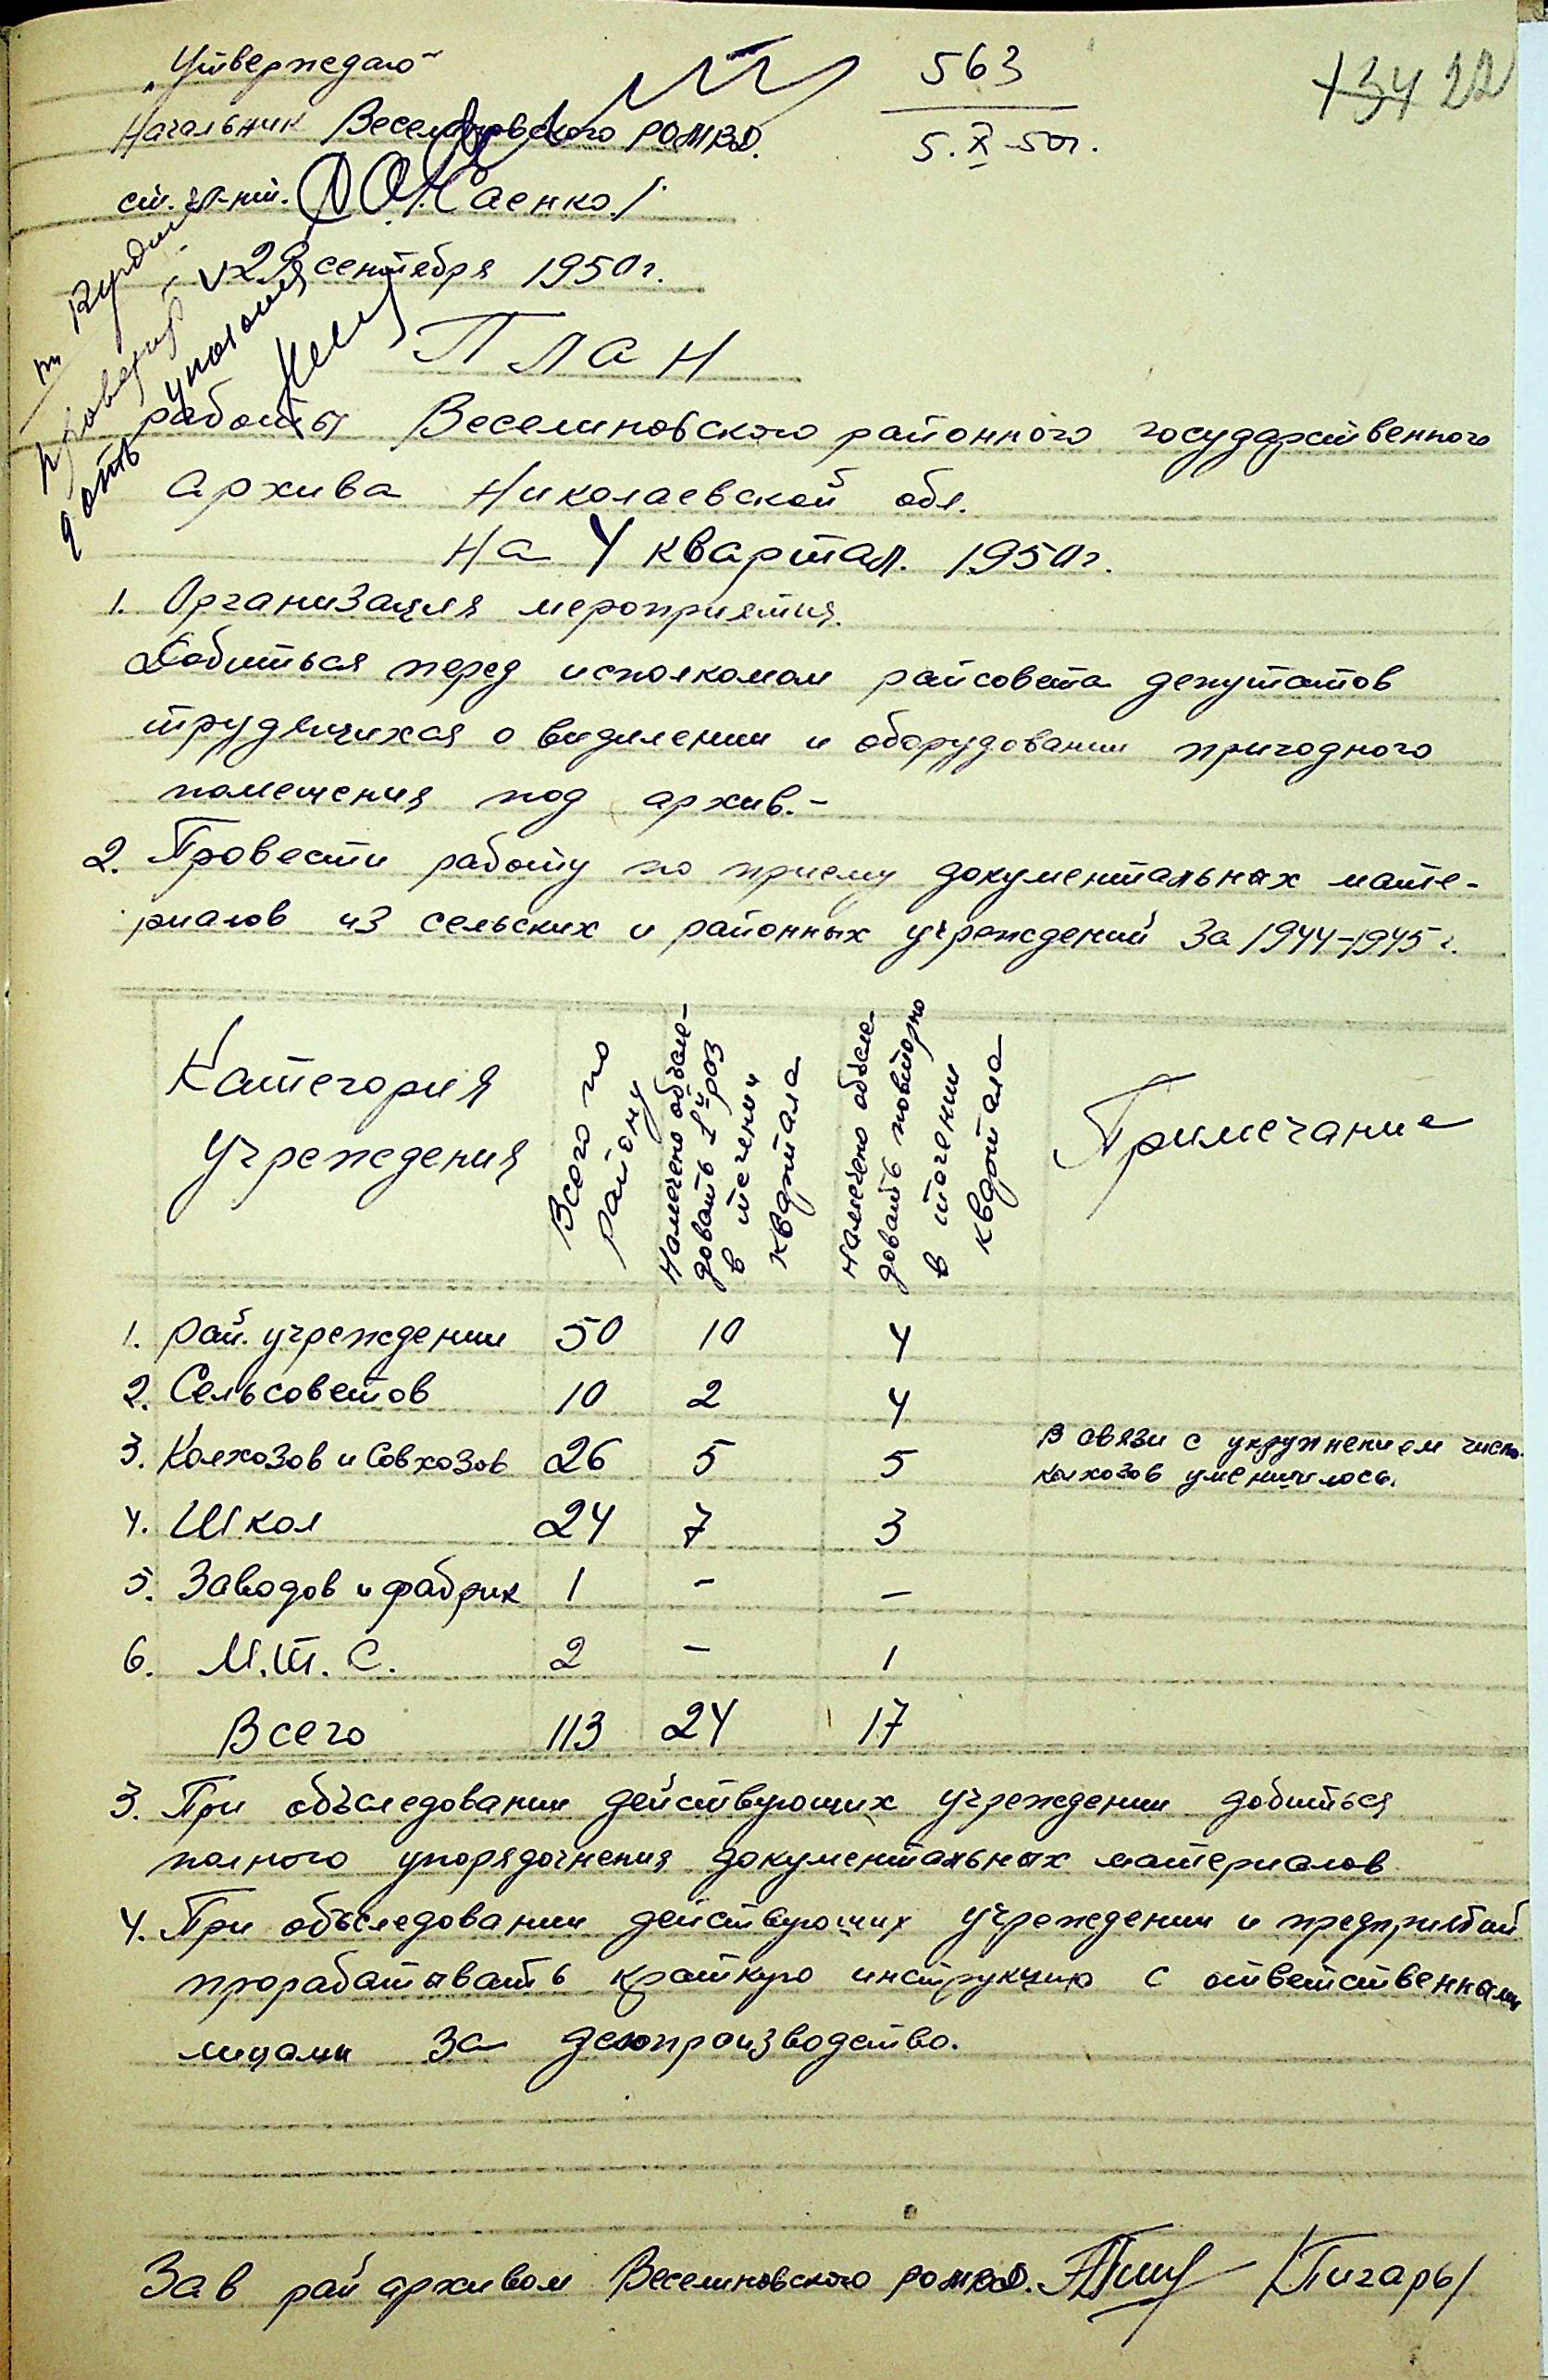 „Утверждаю"
563
Начальник Веселиновского РОМВД.
5.X-50г.
22
ст. л-нт. /Саенко/
29 сентября 1950г.
План
работы Веселиновского районного государственного
архива Николаевской обл.
На 4 квартал. 1950г.
1. Организация мероприятия.
Добиться перед исполкомом райсовета депутатов
трудящихся о виделении и оборудовании пригодного
помещения под архив.-
2. Провести работу по приему документальных мате-
риалов из сельских и районных учреждений за 1944-1945г.
Категория
учреждения
Всего по
району
Намечено обсле-
довать 1й раз
в течении
квартала
Намечено обсле-
довать повторно
в течении
квартала
Примечание
1. рай. учреждении 50 10 4
2. Сельсоветов 10 2 4
3. Колхозов и Совхозов 26 5 5 В связи с укрупнением число
колхозов уменшилось.
4. Школ 24 7 3
5. Заводов и фабрик 1 - -
6. М.т.С. 2 - 1
Всего 113 24 17
3. При объследовании действующих учреждении добиться
полного упорядочнения документальных материалов
4. При объследовании действующих учреждении и предприятий
прорабатывать краткую инструкцию с ответственными
лицами за делопроизводство.
Зав рай архивом Веселиновского РОМВД. /Пигарь/